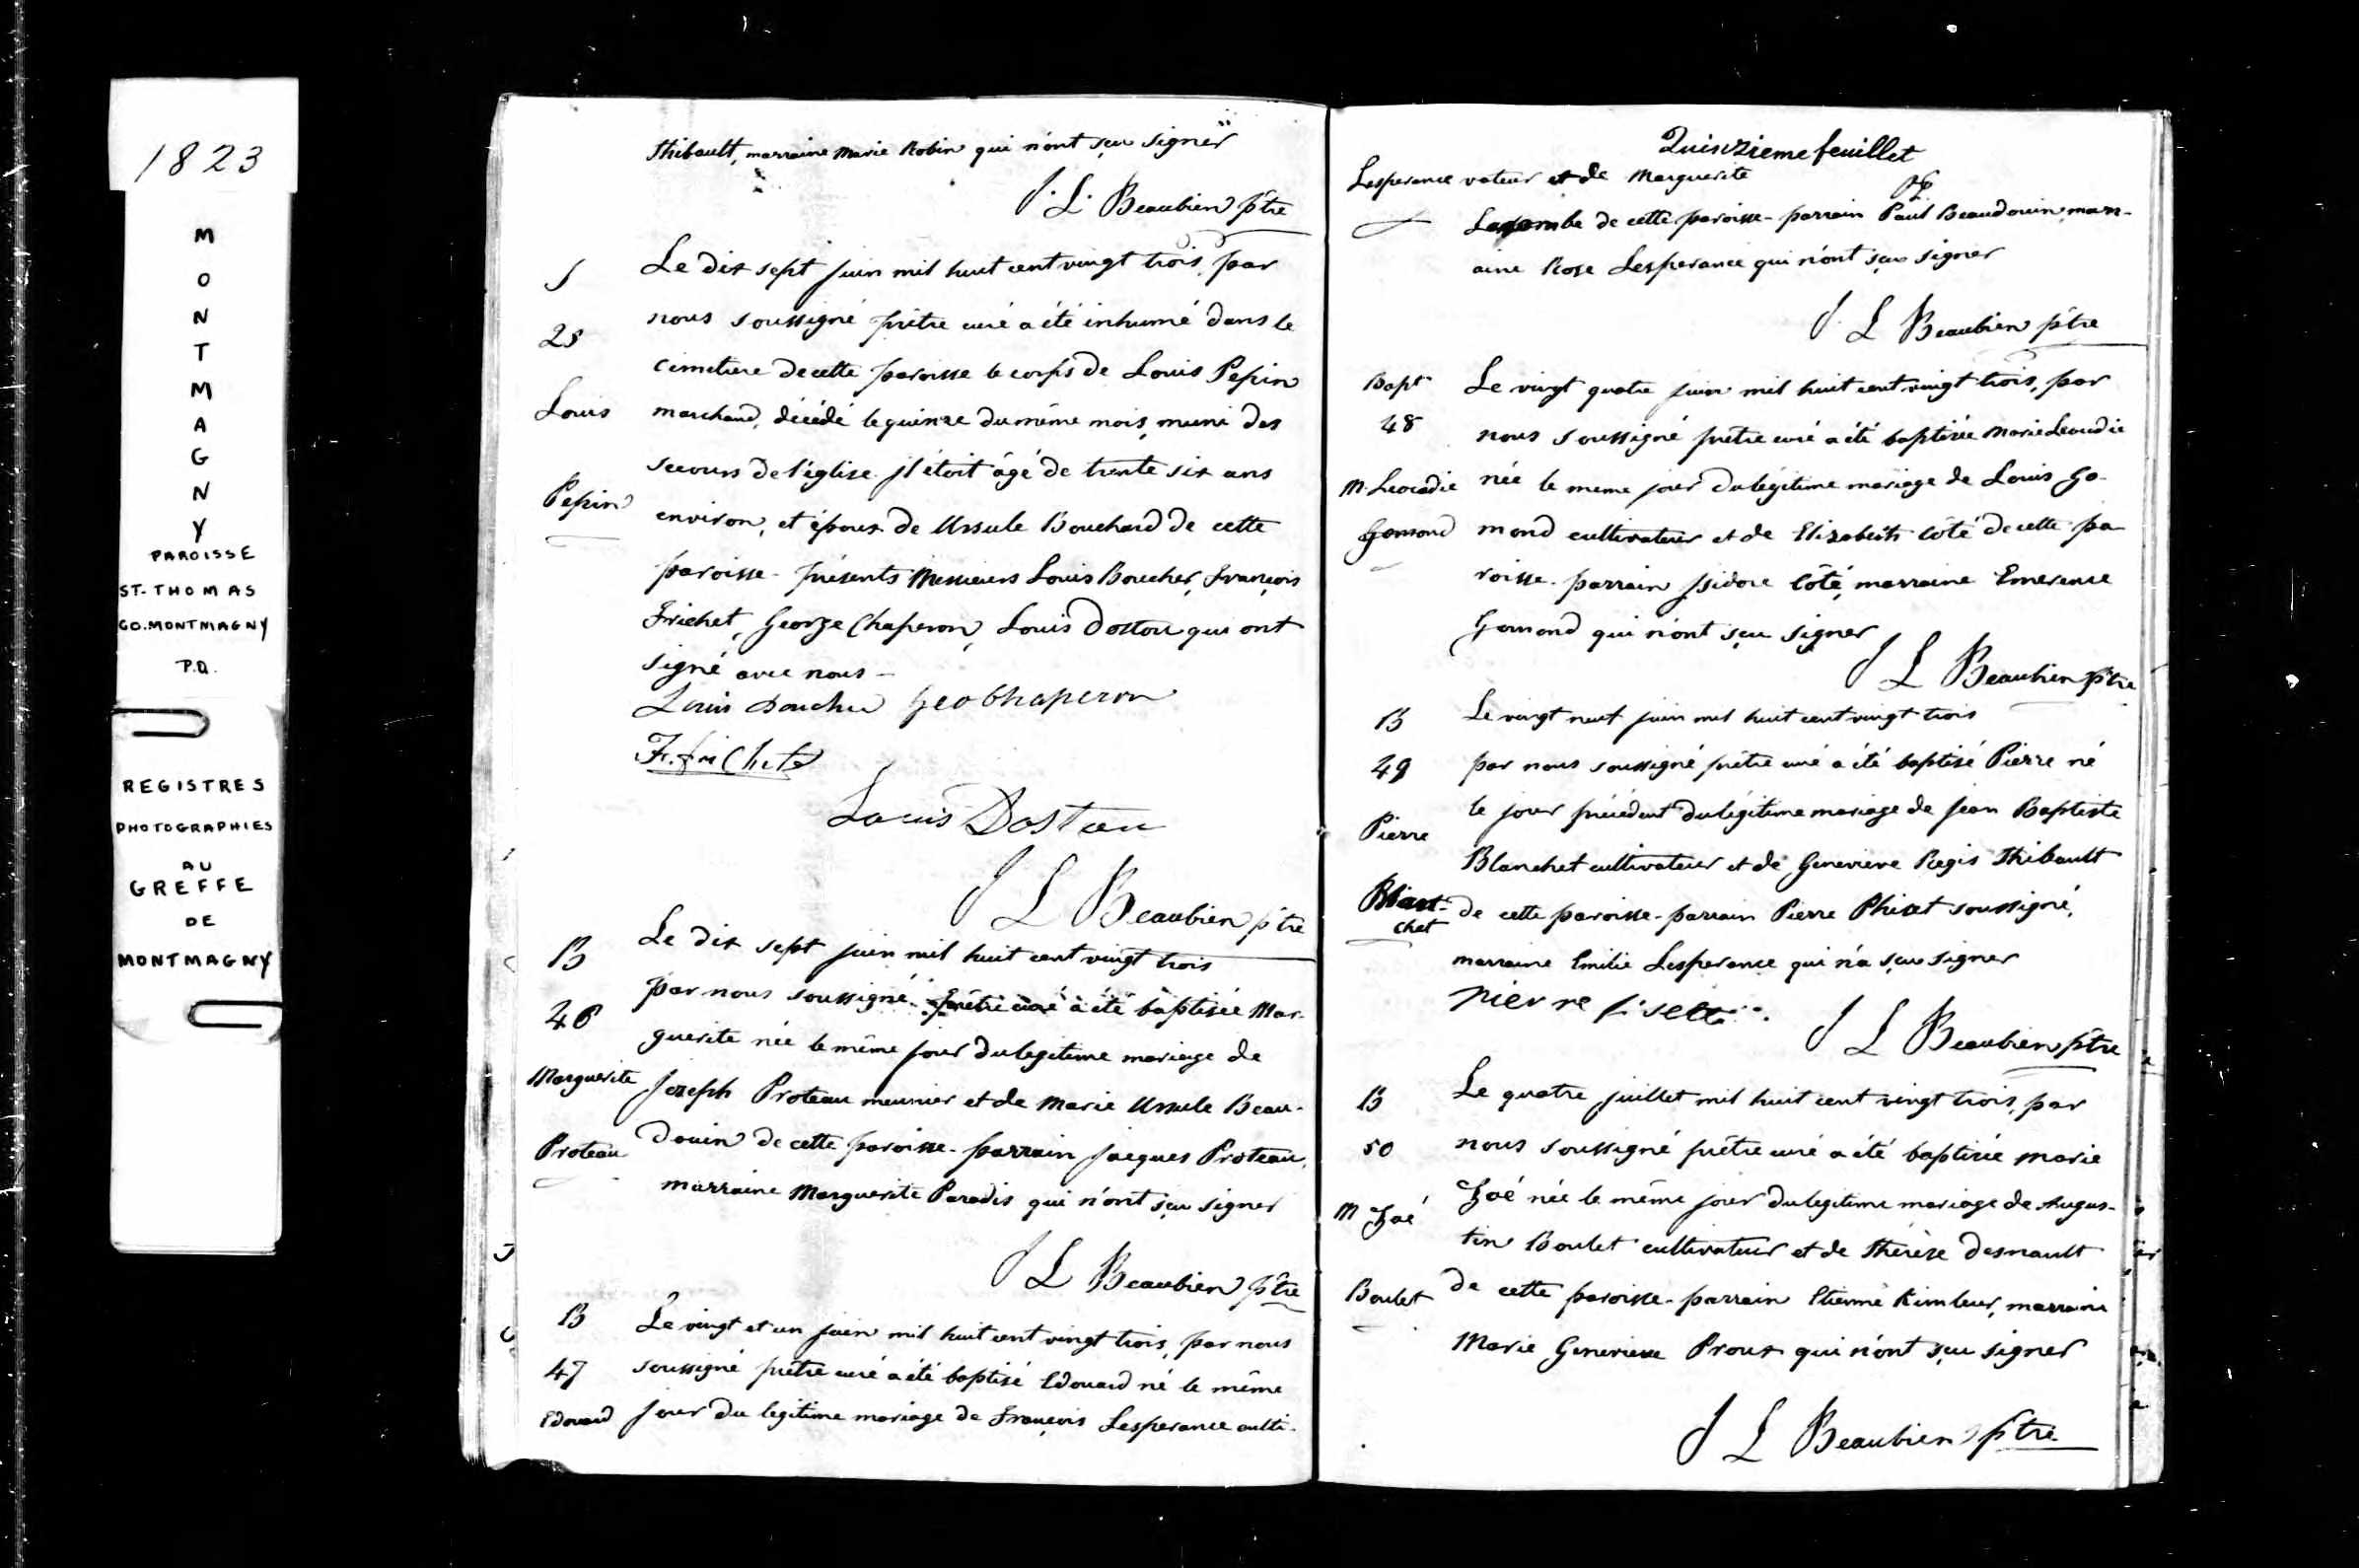 1823
MONTMAGNY
PAROISSE
ST-THOMAS
CO. MONTMAGNY
P.Q.
REGISTRES
PHOTOGRAPHIES
AU
GREFFE
DE
MONTMAGNY
Thibault, marraine Marie Robin qui n'ont sçu signer
J. L. Beaubien ptre
S
Le dix sept juin mil huit cent vingt trois, par
nous soussigné prêtre curé a été inhumé dans le
cimetiere de cette paroisse le corps de Louis Pepin
Louis
marchand, décédé le quinze du même mois, muni des
secours de l'église. il étoit âgé de trente six ans
Pepin
environ, et époux de Ursule Bouchard de cette
paroisse - présents Messieurs Louis Boucher, François
Frichet, George Chaperon, Louis Dostou qui ont
signé avec nous -
Louis Boucher Geo Chaperon
Louis Dostou
J L Beaubien ptre
B
Le dix sept juin mil huit cent vingt trois
46
par nous soussigné prêtre curé a été baptisée Mar-
guerite née le même jour du legitime mariage de
Marguerite
Joseph Proteau meunier et de Marie Ursule Beau-
Proteau
douin de cette paroisse - parrain Jacques Proteau,
marraine Marguerite Paradis qui n'ont sçu signer
J L Beaubien ptre
B
Le vingt et un juin mil huit cent vingt trois, par nous
47
soussigné prêtre curé a été baptisé Edouard né le même
Edouard
jour du legitime mariage de François Lesperance culti-
Quinzieme feuillet
Lesperance
vateur et de Marguerite
de cette paroisse - parrain Paul Beaudouin, marr-
aine Rose Lesperance qui n'ont sçu signer
J. L Beaubien ptre
Bapt
Le vingt quatre juin mil huit cent vingt trois, par
48
nous soussigné prêtre curé a été baptisée Marie Leocadie
M. Leocadie
née le meme jour du légitime mariage de Louis Ga-
Gamond
mond cultivateur et de Elizabeth Côté de cette pa
roisse. parrain Isidore Côté, marraine Emerence
Gamond qui n'ont sçu signer
J L Beaubien ptre
B
Le vingt neuf juin mil huit cent vingt trois
49
par nous soussigné prêtre curé a été baptisé Pierre né
Pierre
le jour précédent du légitime mariage de Jean Baptiste
Blanchet cultivateur et de Genevieve Regis Thibault
Blan-
chet
de cette paroisse - parrain Pierre Phiset soussigné,
marraine Emilie Lesperance qui n'a sçu signer
pierre fisette
J L Beaubien ptre
B
Le quatre juillet mil huit cent vingt trois, par
50
nous soussigné prêtre curé a été baptisée Marie
M Zoé
Zoé née le même jour du legitime mariage de Augus-
tin Boulet cultivateur et de Thérèse Desnault
Boulet
de cette paroisse - parrain Etienne Kimleur, marraine
Marie Genevieve Proux qui n'ont sçu signer
J L Beaubien ptre